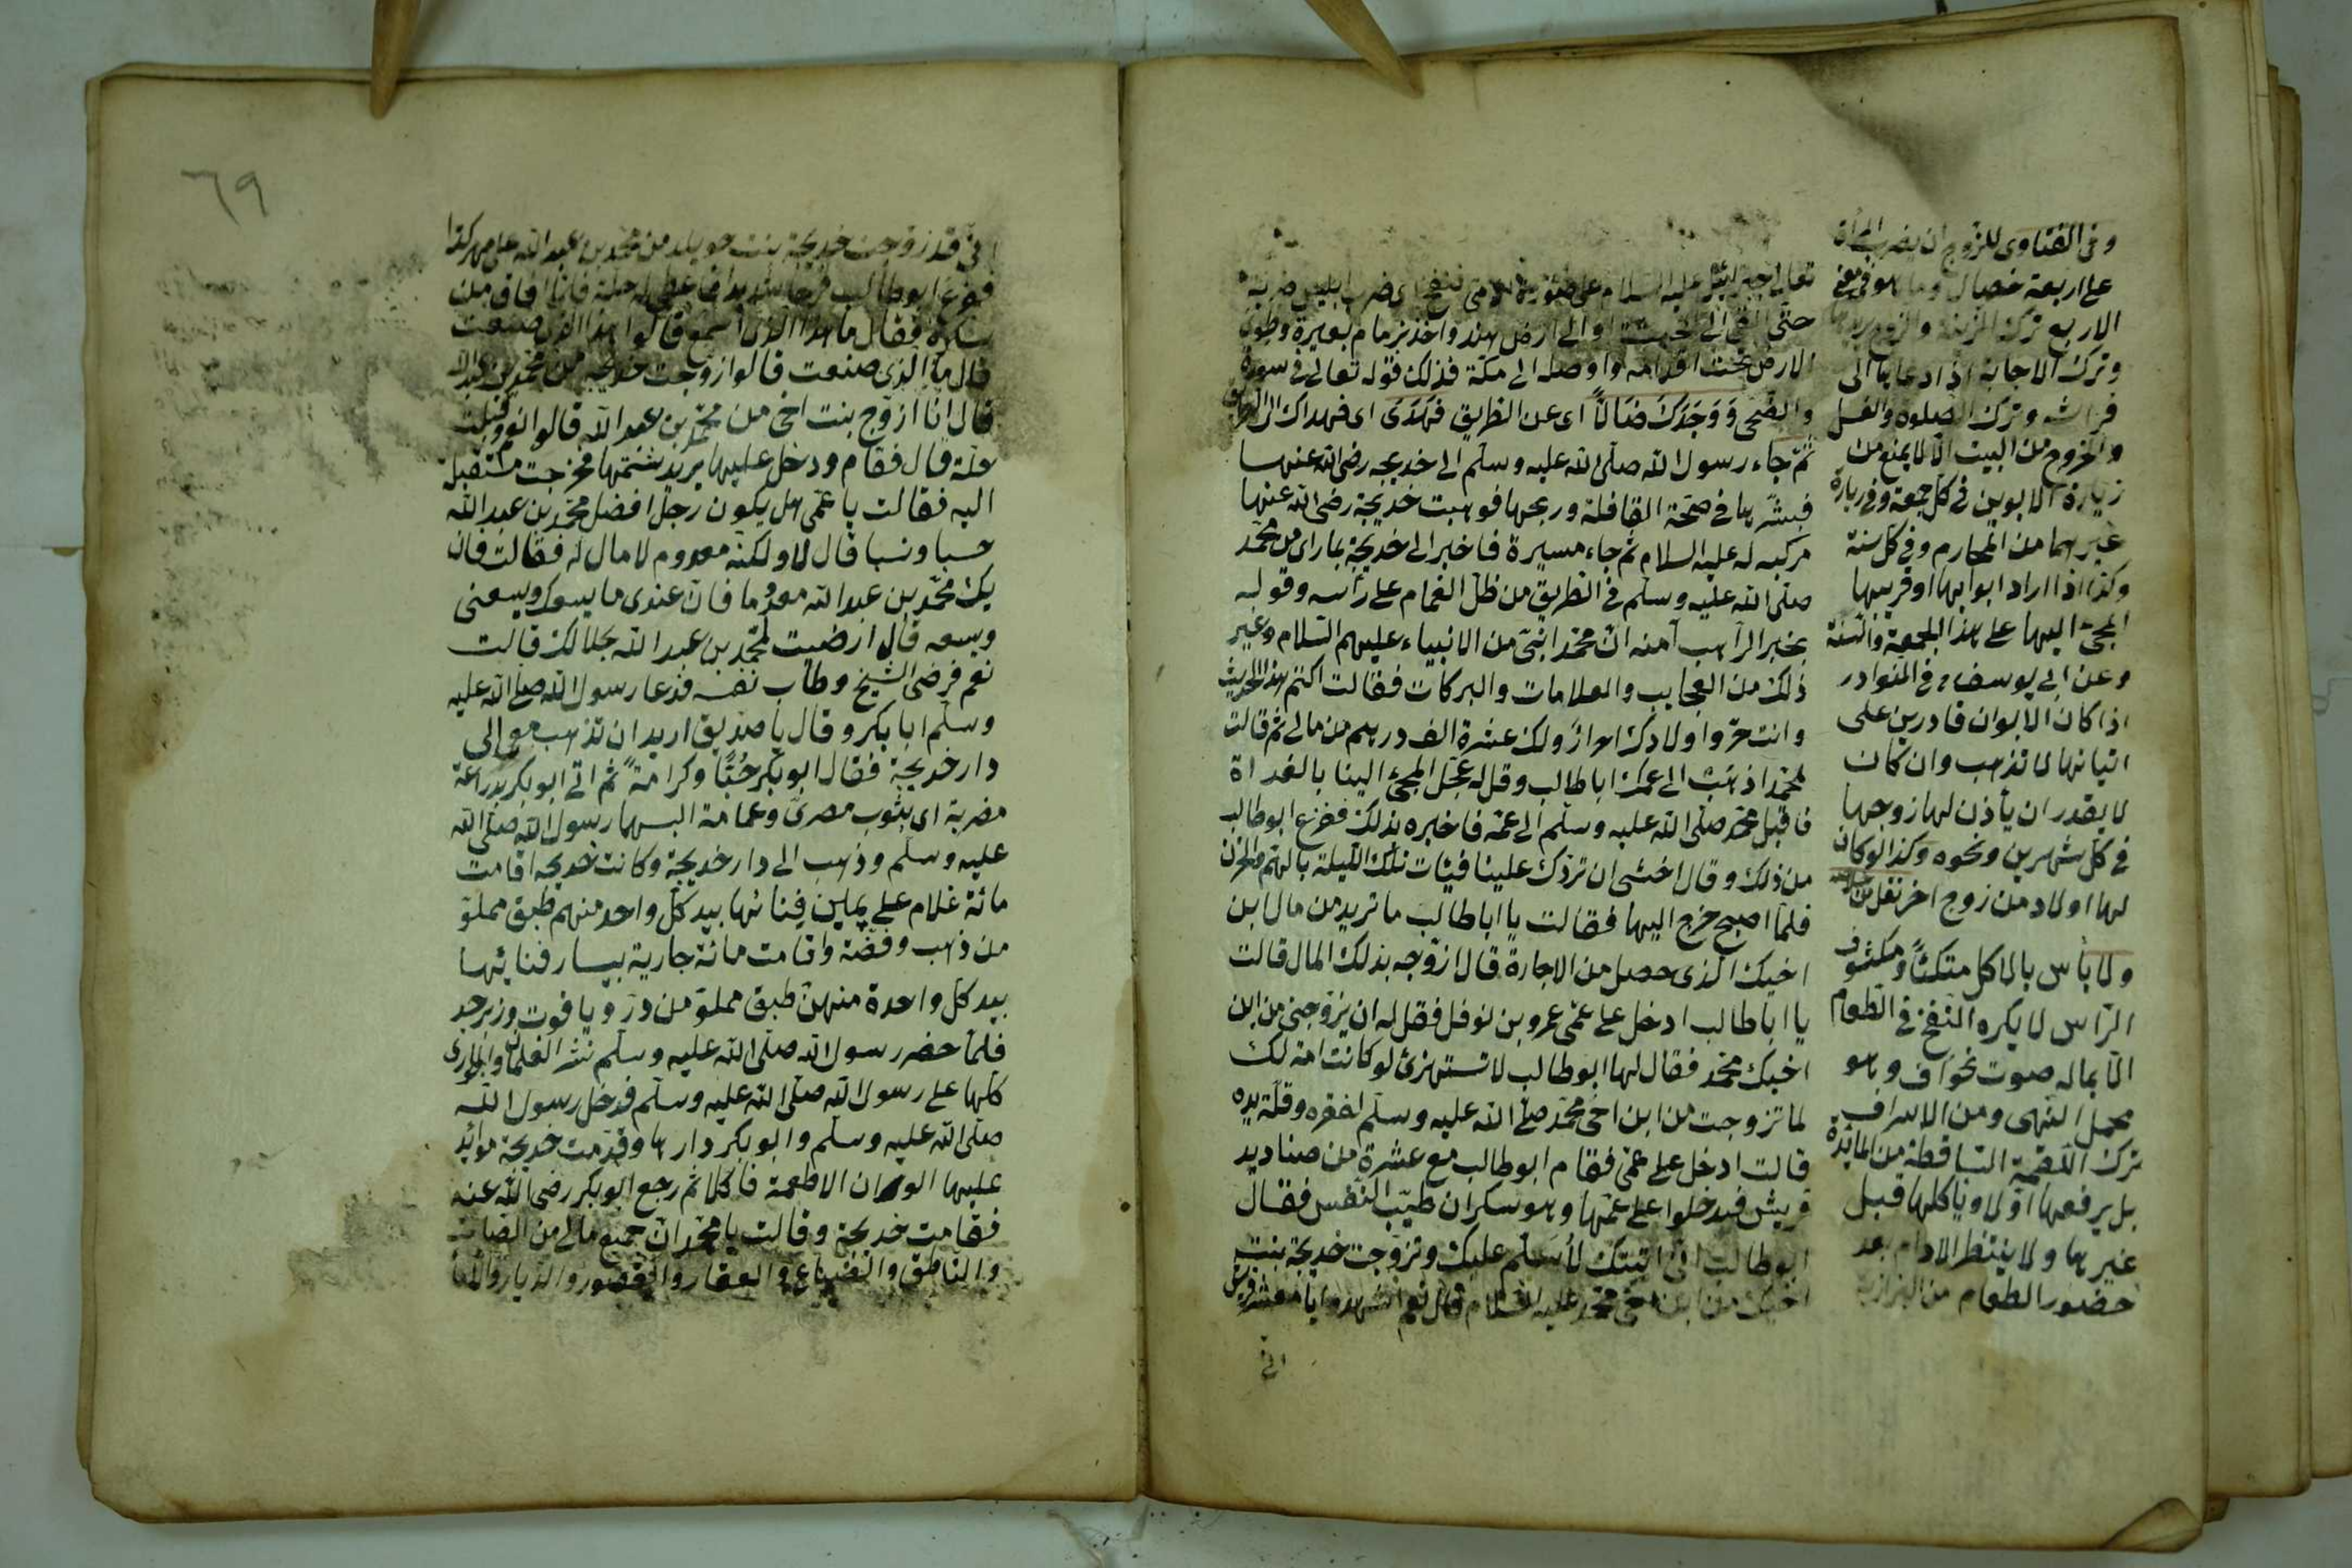 تعالى جبرائيل عليه السلام على صورة فنفخ اى ضرب ابليس ضربة
حتى القى الى او الى ارض هند واخذ بزمام بعيره وطوى
الارض تحت اقدامه واوصله الى مكة فذلك قوله تعالى فى سورة
والضحى وَوَجَدَكَ ضَالًّا اى عن الطريق فَهَدَى اى فهداك الى الطريق
ثم جاء رسول الله صلى الله عليه وسلم الى خديجه رضى الله عنها
فبشّرها فى صحة القافلة وربحها فوهبت خديجة رضى الله عنها
مركبه له عليه السلام ثم جاء مسيرة فاخبر الى خديجة بما راى من محمّد
صلى الله عليه وسلم فى الطريق من ظل الغمام على رأسه وقوله
بخبر الراهب آمنه انّ محمّدا نبىّ من الانبياء عليهم السّلام وغير
ذلك من العجايب والعلامات والبركات فقالت اكتم هذا الحديث
وانت حرّ واولادك احرار ولك عشرة الف درهم من مالى ثم قالت
لمحمّد اذهب الى عمّك ابا طالب وقل له عجّل المجئ الينا بالغداة
فاقبل محمّد صلى الله عليه وسلم الى عمّه فاخبره بذلك ففزع ابو طالب
من ذلك وقال اخشى ان تردّك علينا فبات تلك الليلة بالهمّ والحزن
فلمّا اصبح خرج اليها فقالت يا ابا طالب ما تريد من مال ابن
اخيك الذى حصل من الاجارة قال ازوّجه بذلك المال قالت
يا ابا طالب ادخل على عمّى عمرو بن نوفل فقل له ان يزوّجنى من ابن
اخيك محمّد فقال لها ابو طالب لا تستهزئ لو كانت امة لك
لما تزوجت من ابن اخى محمّد صلى الله عليه وسلم لفقره وقلّة يده
قالت ادخل على عمّى فقام ابو طالب مع عشرة من صناديد
قريش فدخلوا على عمّها وهو سكران طيّب النفس فقال
ابو طالب انى اتيتك لأسلّم عليك وتزوّجت خديجة بنت
اخيك من ابن اخى محمّد عليه السّلام قال نعم اشهدوا يا معشر قريش
انى
وفى الفتاوى للزوج ان يضرب المرأة
على اربعة خصال وما هو فى معنى
الاربع ترك الزينة والزوج يريدها
وترك الاجابة اذا دعاها الى
فراشه وترك الصلوة والغسل
والخروج من البيت الّا لا يمنع من
زيارة الابوين فى كلّ جمعة وفى زيارة
غيرهما من المحارم وفى كل سنة
وكذا اذا اراد ابوابها او قريبها
المجئ اليها على هذا الجمعة والسّنة
وعن ابى يوسف فى النوادر
اذا كان الابوان قادرين على
اتيانها لا تذهب وان كان
لا يقدر ان يأذن لها زوجها
فى كلّ شهرين ونحوه وكذا لو كان
لها اولاد من زوج اخر نقل من
ولا بأس بالاكل متكئًا ومكشوف
الرّاس لا يكره النفخ فى الطعام
الّا بما له صوت نحو اف وهو
محمل النّهى ومن الاسراف
ترك اللقمة السّاقطة من المائدة
بل يرفعها اوّلا ويأكلها قبل
غيرها ولا ينتظر الادام بعد
حضور الطعام من البزازية
٦٩
انى قد زوجت خديجة بنت خويلد من محمّد بن عبد الله على مهر كذا
ففزع ابو طالب فرحا شديدا فاعطى له حلة فلمّا افاق من
سكره فقال ما هذا الذى اسمع قالوا هذا الذى صنعت
قال ما الذى صنعت قالوا زوّجت خديجة من محمّد بن عبد الله
قال انا ازوّج بنت اخى من محمّد بن عبد الله قالوا نعم وقبلت
حلّة قال فقام ودخل عليها يريد شتمها فخرجت مستقبلة
اليه فقالت يا عمّى هل يكون رجل افضل محمّد بن عبد الله
حسبا ونسبا قال لا ولكنه معدوم لا مال له فقالت فان
يك محمّد بن عبد الله معدوما فانّ عندى ما يسعك ويسعنى
ويسعه قال ارضيت لمحمّد بن عبد الله بجلالك قالت
نعم فرضى الشيخ وطاب نفسه فدعا رسول الله صلى الله عليه
وسلم ابا بكر وقال يا صدّيق اريد ان تذهب معى الى
دار خديجة فقال ابو بكر حُبًّا وكرامةً ثم اتى ابو بكر بدرّاعة
مضربة اى بثوب مصرىّ وعمامة البسهما رسول الله صلى الله
عليه وسلم وذهب الى دار خديجة وكانت خديجه اقامت
مائة غلام على يمين فِنائها بيد كلّ واحد منهم طبق مملوّ
من ذهب وفضّة واقامت مائة جارية بيسار فنائها
بيد كلّ واحدة منهنّ طبق مملوّ من درّ وياقوت وزبرجد
فلمّا حضر رسول الله صلى الله عليه وسلم نثر الغلمان والجوارى
كلّها على رسول الله صلى الله عليه وسلم فدخل رسول الله
صلى الله عليه وسلم وابو بكر دارها وقدّمت خديجة موائد
عليها الوان الاطعمة فاكلا ثم رجع ابو بكر رضى الله عنه
فقامت خديجة وقالت يا محمّد انّ جميع مالى من الصّامت
والنّاطق والضّياع والعقار والقصور والدّيار